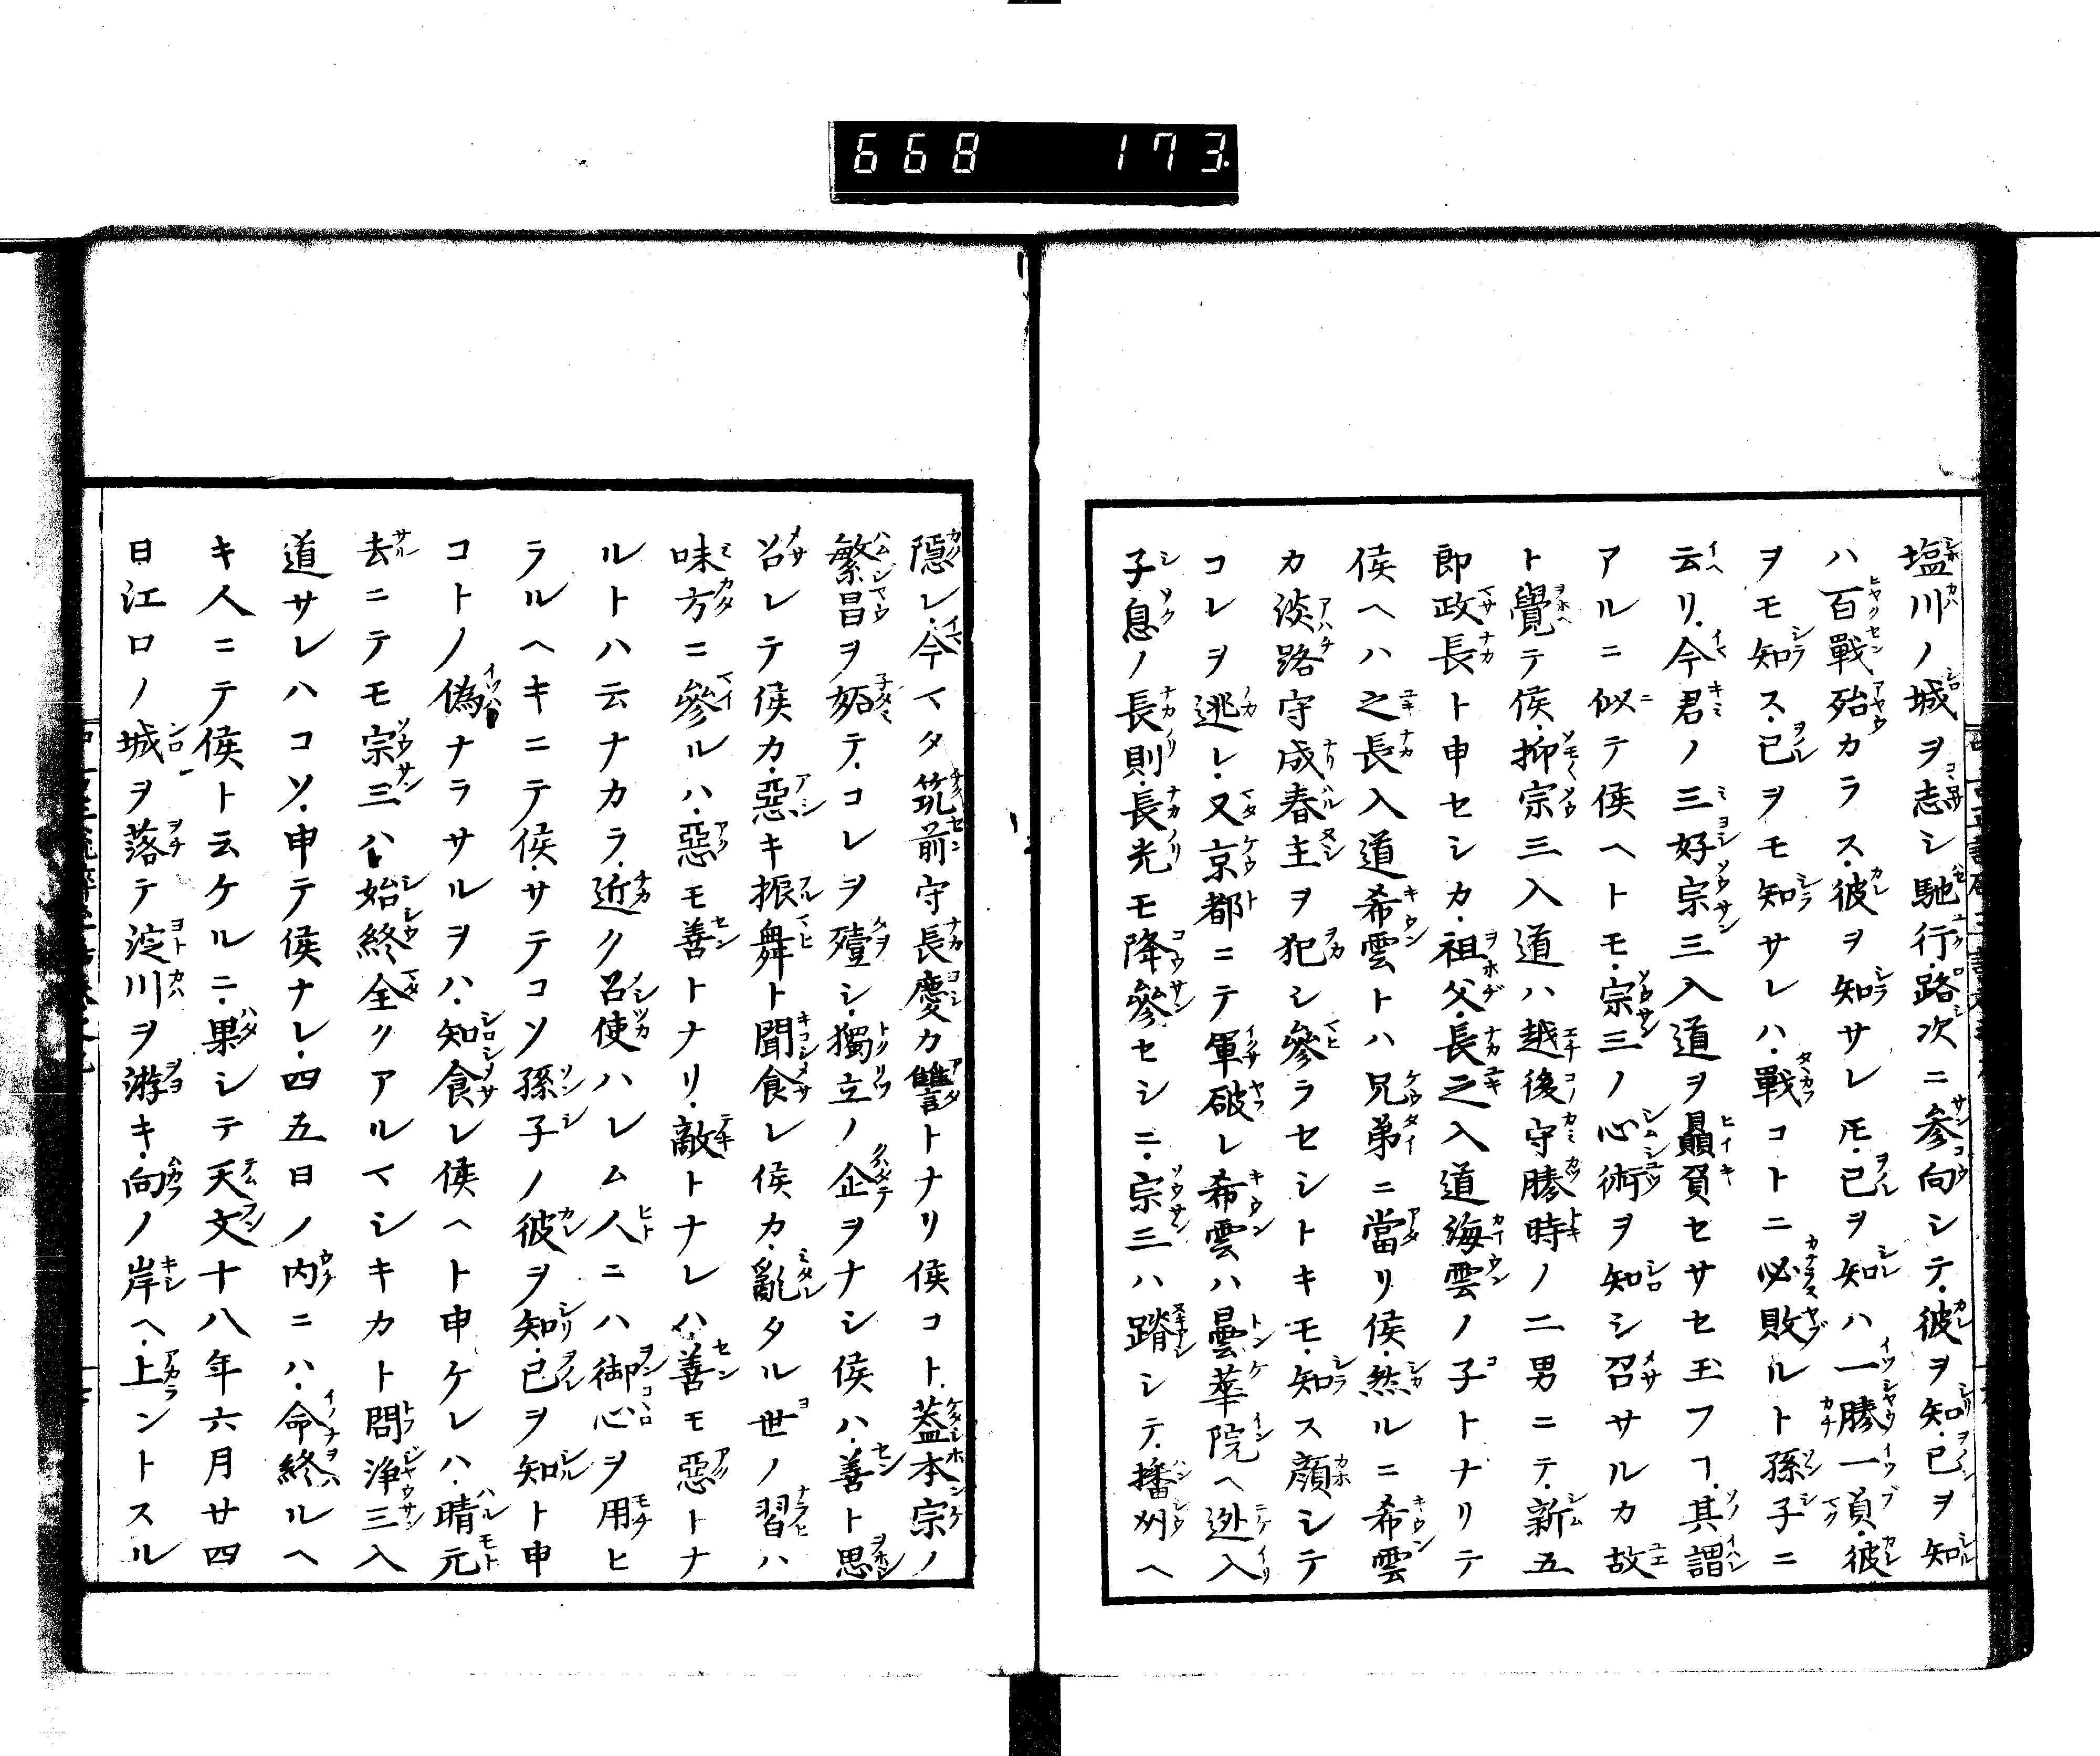 668 173.
塩川ノ城ヲ志シ馳行路次ニ参向シテ彼ヲ知已ヲ知
ハ百戰殆カラス彼ヲ知サレ𪜈已ヲ知ハ一勝一負彼
ヲモ知ス已ヲモ知サレハ戰コトニ必敗ルト孫子ニ
云リ今君ノ三好宗三入道ヲ贔負セサセ玉フヿ其謂
アルニ似テ侯ヘトモ宗三ノ心術ヲ知シ召サルカ故
ト覺テ侯抑宗三入道ハ越後守勝時ノ二男ニテ新五
郎政長ト申セシカ祖父長之入道海雲ノ子トナリテ
侯ヘハ之長入道希雲トハ兄弟ニ當リ侯然ルニ希雲
カ淡路守成春主ヲ犯シ參ラセシトキモ知ス顔シテ
コレヲ逃レ又京都ニテ軍破レ希雲ハ曇華院ヘ迯入
子息ノ長則長光モ降參セシニ宗三ハ踏シテ播州ヘ
隠レ今マタ筑前守長慶カ讐トナリ侯コト蓋本宗ノ
繁昌ヲ妬テコレヲ殪シ獨立ノ企ヲナシ侯ハ善ト思
召レテ侯カ惡キ振舞ト聞食レ侯カ亂タル世ノ習ハ
味方ニ參ルハ惡モ善トナリ敵トナレハ善モ惡トナ
ルトハ云ナカラ近ク召使ハレム人ニハ御心ヲ用ヒ
ラルヘキニテ侯サテコソ孫子ノ彼ヲ知已ヲ知ト申
コトノ偽ナラサルヲハ知食レ侯ヘト申ケレハ晴元
去ニテモ宗三ハ始終全クアルマシキカト問浄三入
道サレハコソ申テ侯ナレ四五日ノ内ニハ命終ルヘ
キ人ニテ侯ト云ケルニ果シテ天文十八年六月廿四
日江口ノ城ヲ落テ淀川ヲ游キ向ノ岸ヘ上ントスル